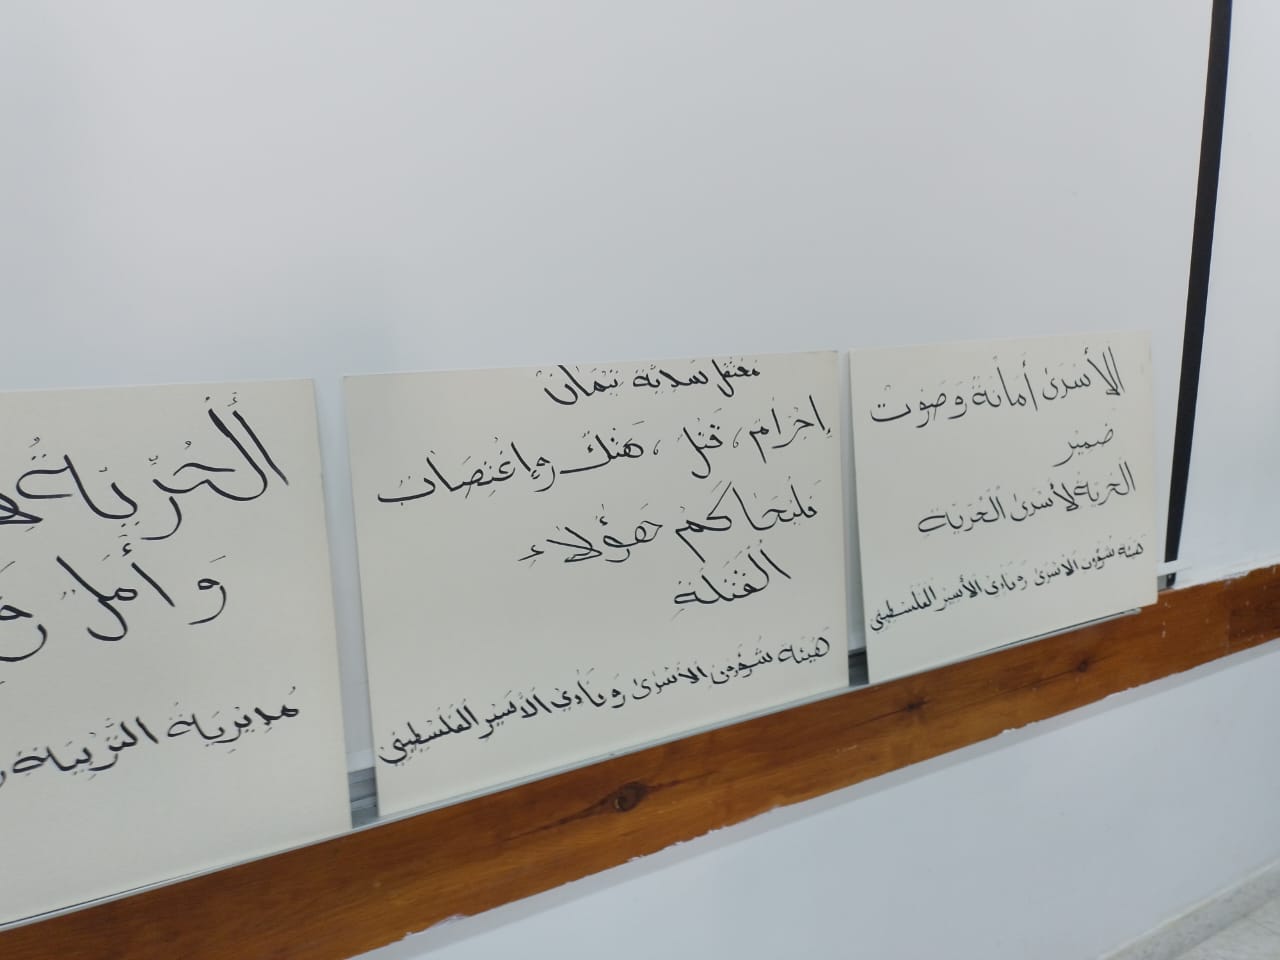 الأسرى أمانة وصوت
ضمير
الحرية لأسرى الحرية
هيئة شؤون الأسرى ونادي الأسير الفلسطيني
معتقل سدية تيمان
إجرام، قتل، هتك وإغتصاب
فليحاكم هؤلاء
القتلة
هيئة شؤون الأسرى ونادي الأسير الفلسطيني
الحُرِّيةُ
وأمل
مديرية التربية